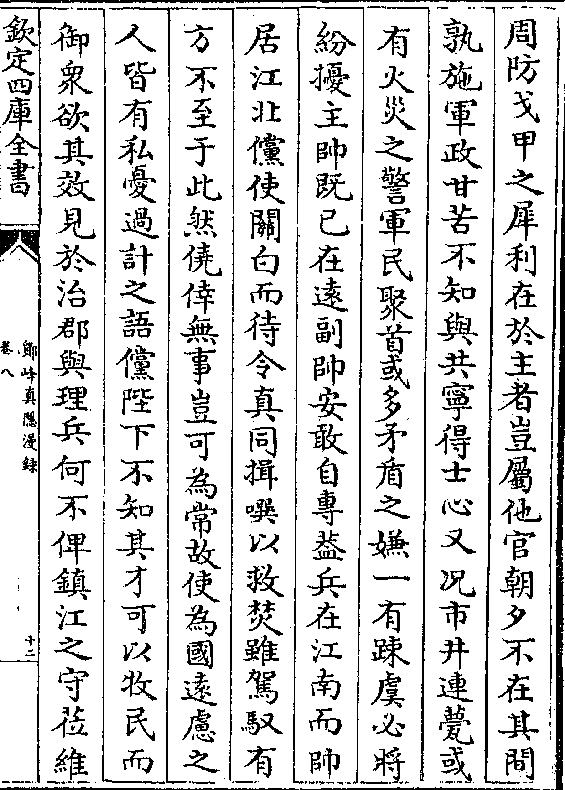 周防戈甲之犀利在於主者豈屬他官朝夕不在其間
孰施軍政甘苦不知與共寧得士心又况市井連甍或
有火災之警軍民聚首或多矛盾之嫌一有踈虞必將
紛擾主帥既已在遠副帥安敢自專葢兵在江南而帥
居江北儻使關白而待令真同揖㗱以救焚雖駕馭有
方不至于此然僥倖無事豈可為常故使為國遠慮之
人皆有私憂過計之語儻陛下不知其才可以牧民而
御衆欲其效見於治郡與理兵何不俾鎮江之守莅維
欽定四庫全書
鄮峰真隠漫錄
卷八
十二